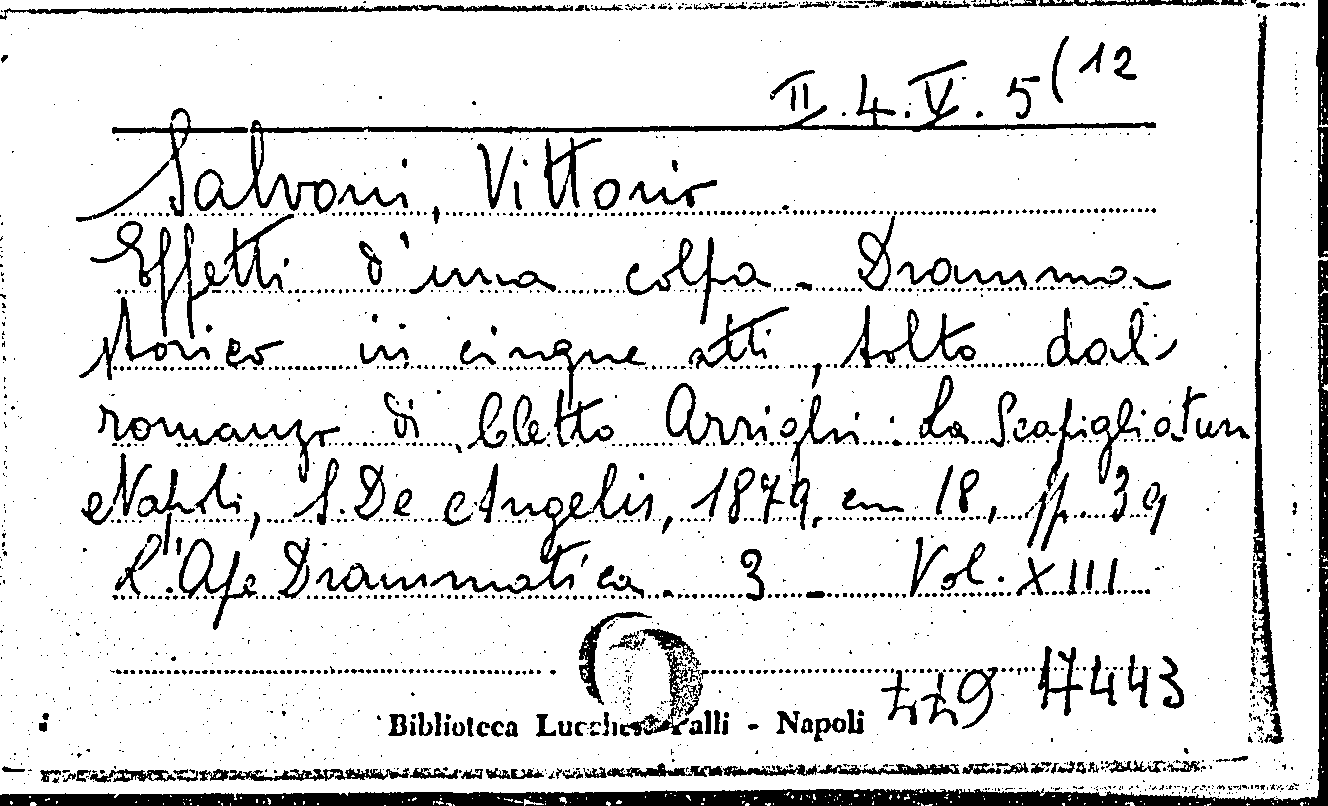 II.4.V.5(12
Salvoni, Vittorio
Effetti d'una colpa. Dramma
storico in cinque atti, tolto dal
romanzo di Cletto Arrighi: La Scapigliatura
Napoli, S. De Angelis, 1879, in 18, pp. 39
L'Ape Drammatica. 3 - Vol. XIII
17443
Biblioteca Lucchesi Palli - Napoli